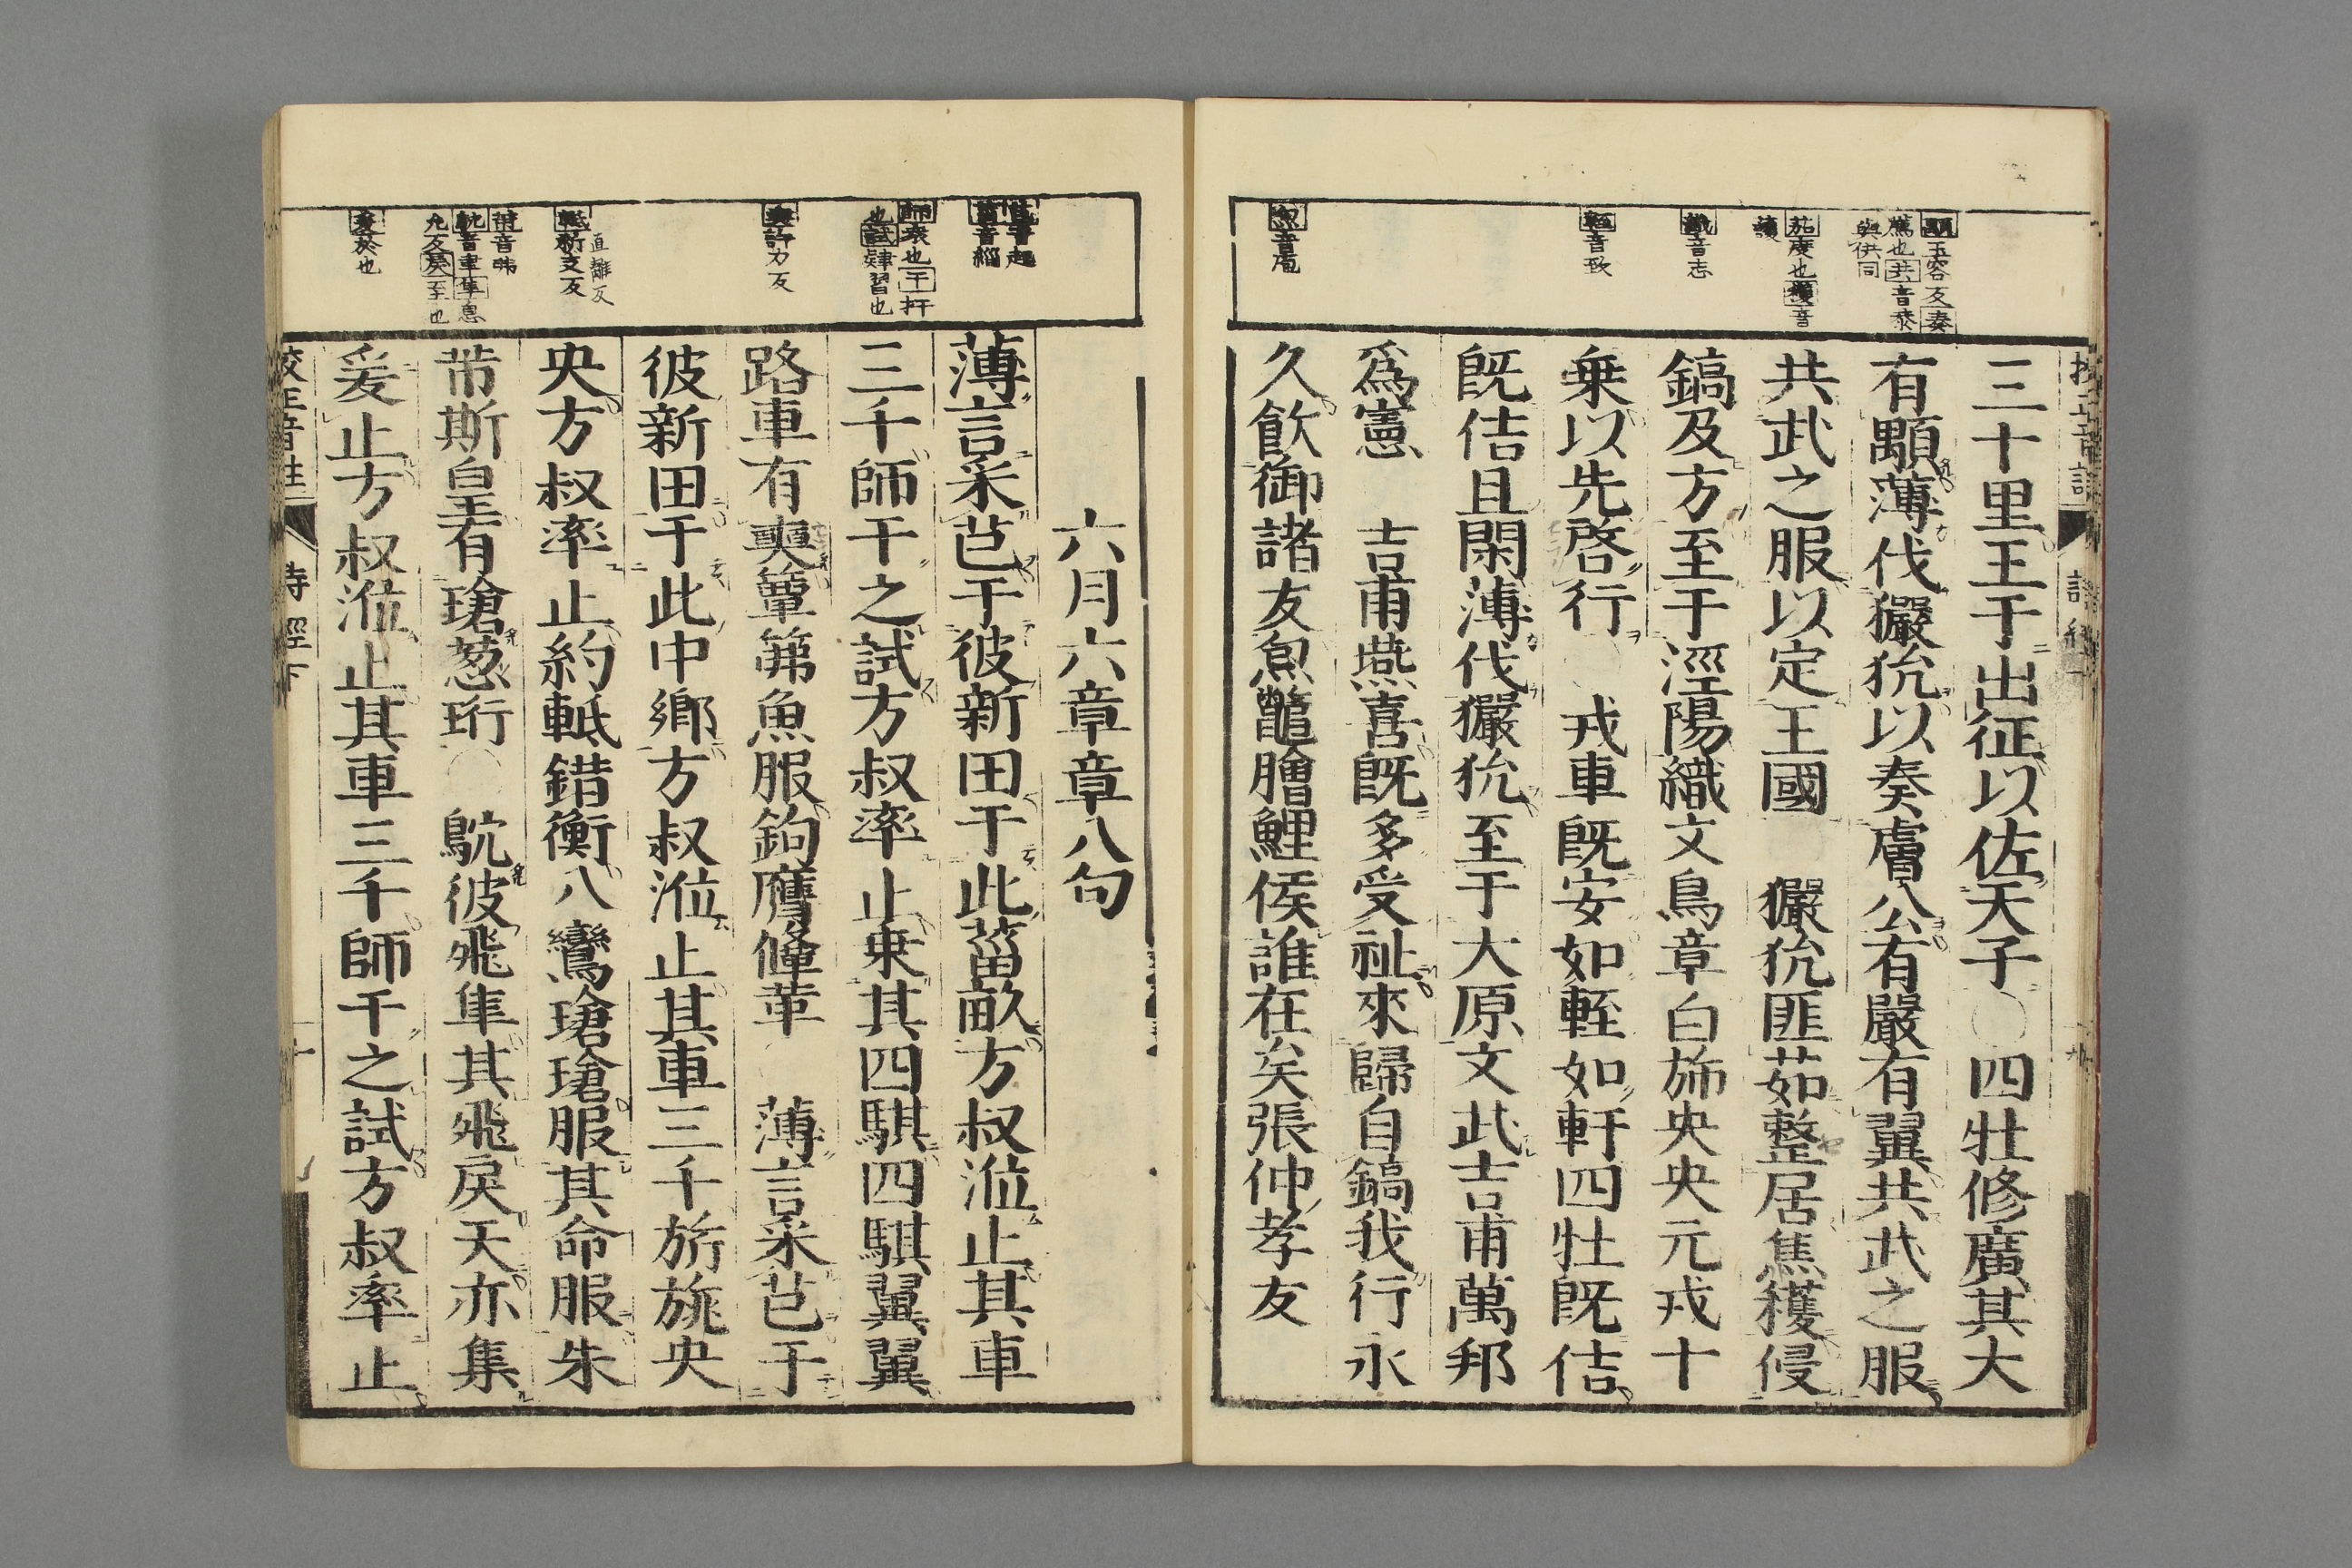 三十里王于出征以佐天子〇四牡修廣其大
有顒薄伐玁狁以奏膚公有嚴有翼共武之服
共武之服以定王國　玁狁匪茹整居焦穫侵
鎬及方至于涇陽織文鳥章白旆央央元戎十
乗以先啓行　戎車既安如輊如軒四牡既佶
既佶且閑薄伐玁狁至于大原文武吉甫萬邦
爲憲　吉甫燕喜既多受祉來歸自鎬我行永
久飲御諸友炰鼈膾鯉侯誰在矣張仲孝友
顒玉容反奏
薦也共音恭
與供同
茹度也穫音
護
織音志
輊音致
炰音庖
六月六章章八句
薄言采芑于彼新田于此菑畝方叔涖止其車
三千師干之試方叔率止乗其四騏四騏翼翼
路車有奭簟茀魚服鉤膺鞗革　薄言采芑于
彼新田于此中鄉方叔涖止其車三千旂旐央
央方叔率止約軝錯衡八鸞瑲瑲服其命服朱
芾斯皇有瑲葱珩〇鴥彼飛隼其飛戾天亦集
爰止方叔涖止其車三千師干之試方叔率止
芑音起
菑音緇
師衆也干扞
也試肄習也
奭許力反
直離反
軝祈支反
芾音弗
鴥音聿隼息
允反戾至也
爰於也
校正音註　詩經下